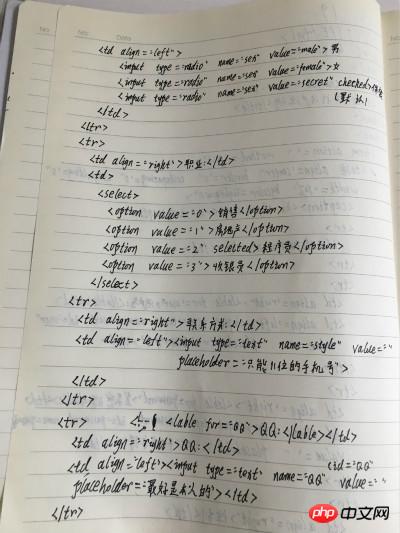 No.
Date
No.
<td align="left">
<input type="radio" name="sex" value="male">男
<input type="radio" name="sex" value="female">女
<input type="radio" name="sex" value="secret" checked>
(默认)
</td>
</tr>
<tr>
<td align="right">职业:</td>
<td>
<select>
<option value="0">销售</option>
<option value="1">房地产</option>
<option value="2" selected>程序员</option>
<option value="3">收银员</option>
</select>
<tr>
<td align="right">联系方式:</td>
<td align="left"><input type="text" name="style" value=""
placeholder="只能11位的手机号">
</td>
</tr>
<tr> <lable for="QQ">QQ:</lable></td>
<td align="right">QQ:</td>
<td align="left"><input type="text" name="QQ" id="QQ"
placeholder="最好是本人的"></td> value=""
</tr>
php中文网